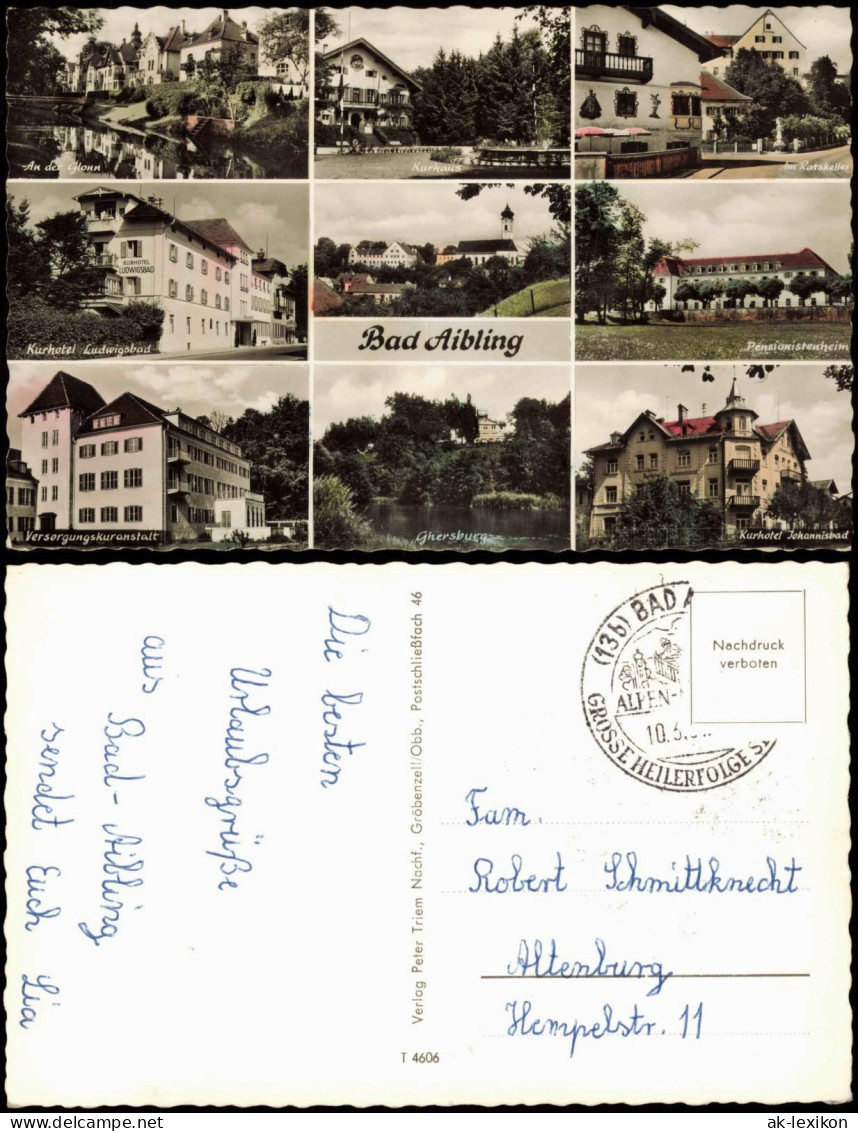 An der Glonn
Kurhaus
Im Ratskeller
KURHOTEL
LUDWIGSBAD
Kurhotel Ludwigsbad
Bad Aibling
Pensionistenheim
Versorgungskuranstalt
Ghersburg
Kurhotel Johannisbad
Die besten
Urlaubsgrüße
aus
Bad-Aibling
sendet Euch Lia
Verlag Peter Triem Nachf., Gröbenzell/Obb., Postschließfach 46
T 4606
(13b) BAD A
ALPEN-
10.3.
GROSSE HEILERFOLGE
Nachdruck
verboten
Fam.
Robert Schmittknecht
Altenburg
Hempelstr. 11
ak-lexikon